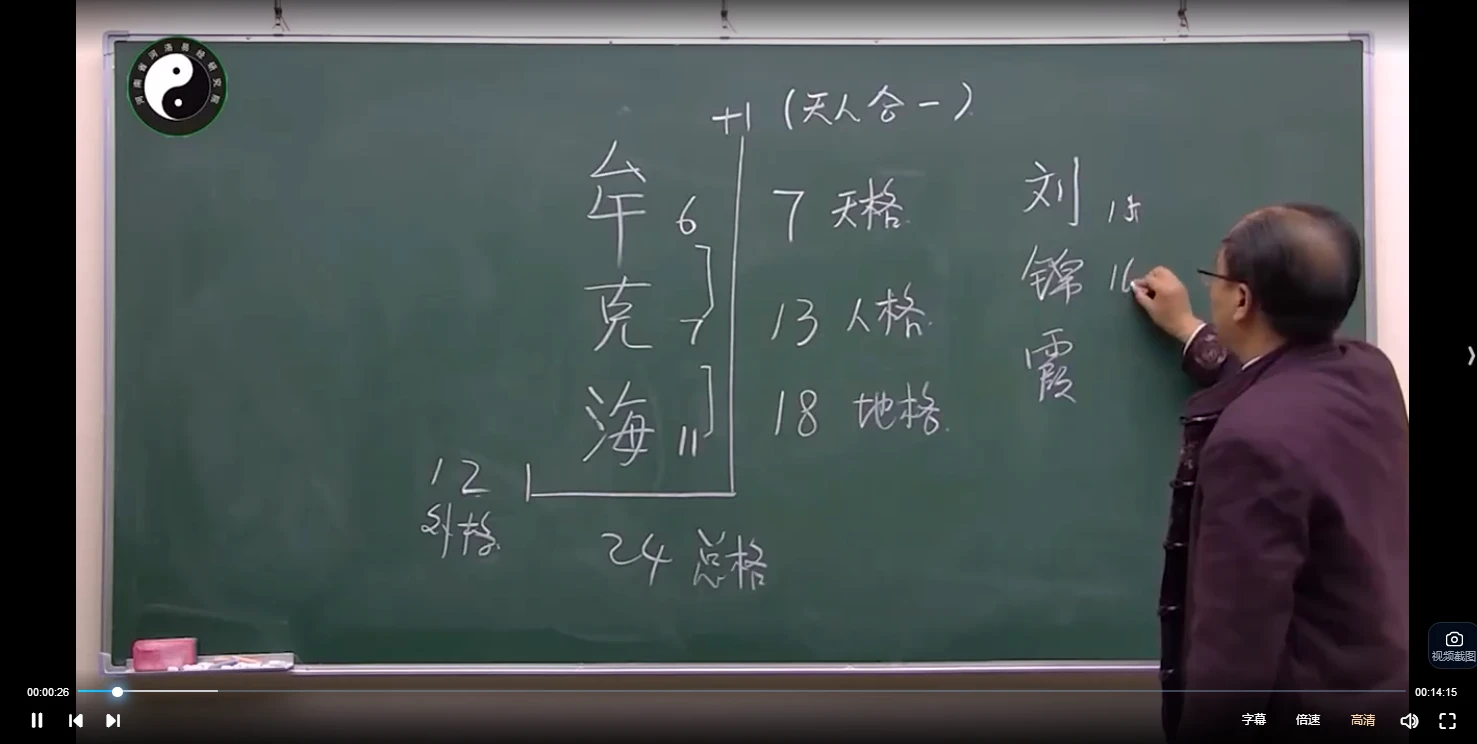 河南省河洛易经研究院
+1 (天人合一)
牟 6 7 天格
克 7 13 人格
海 11 18 地格
12 1
外格
24 总格
刘 15
锦 16
霞
视频截图
00:00:26
00:14:15
字幕 倍速 高清